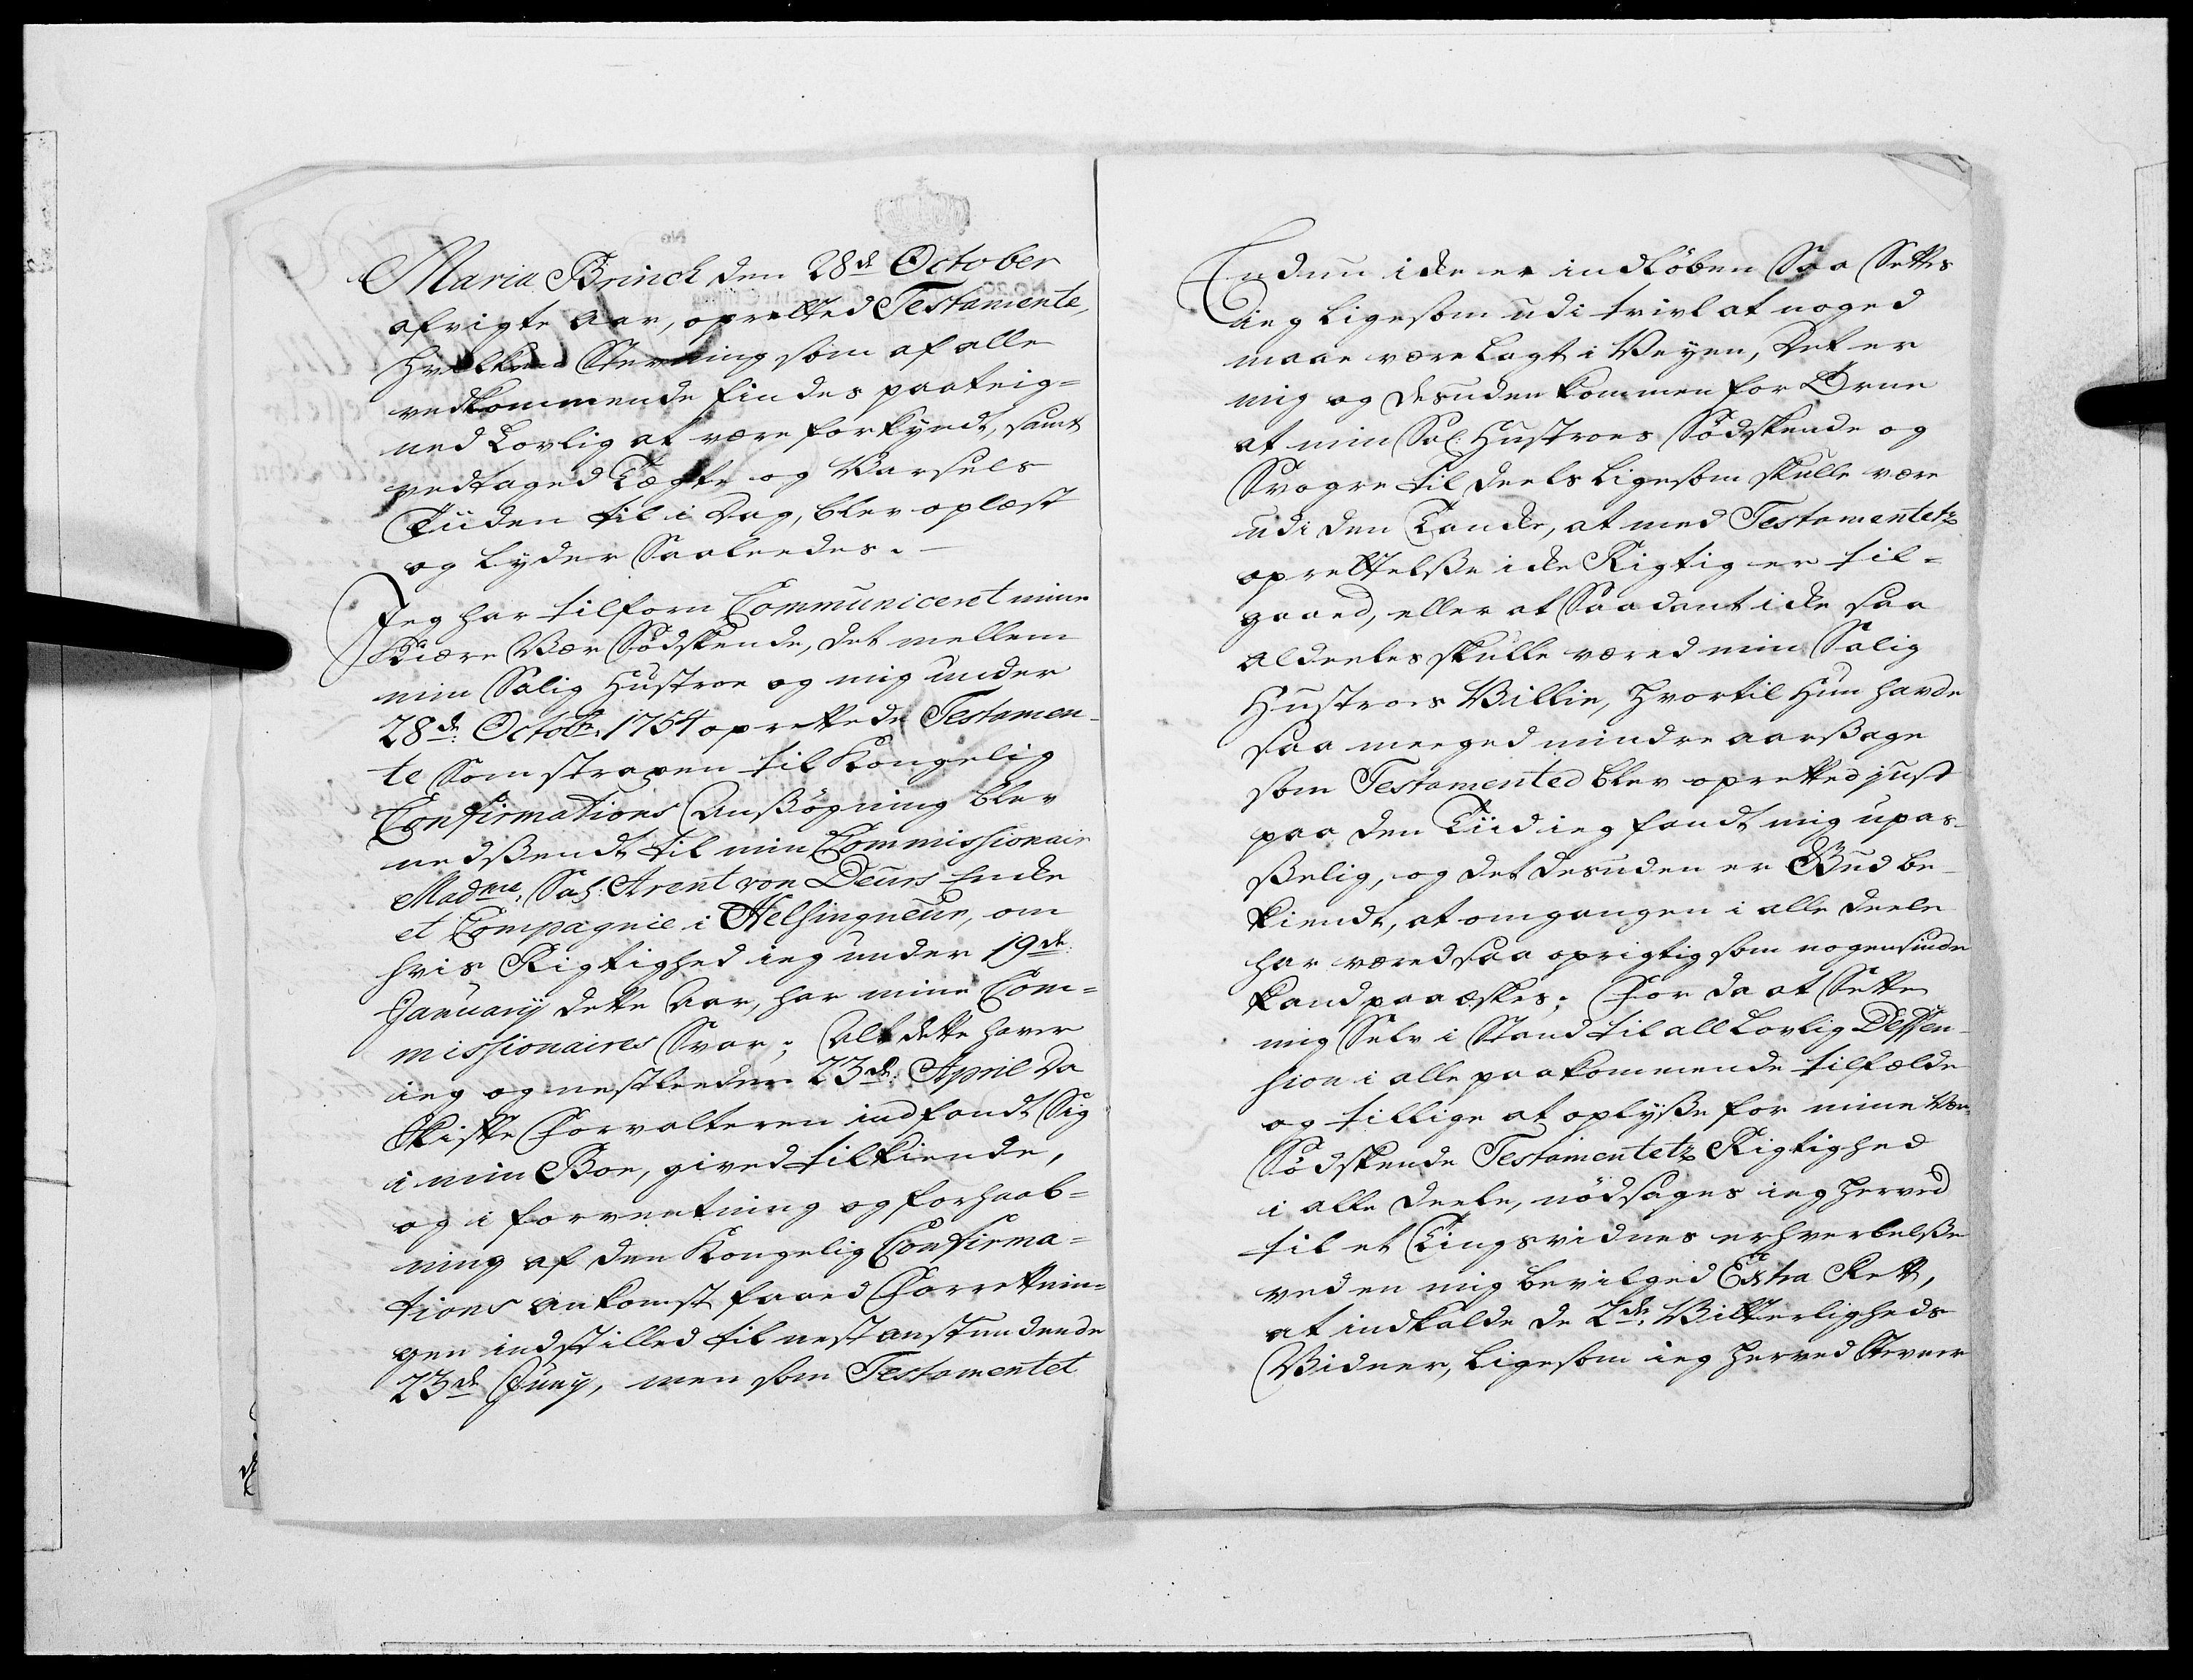 Maria Brinch den 28de October
afvigte Aar, opretted Testamente,
hvilken Stevning som af alle
vedkommende findes paateig-
ned Lovlig at være forkyndt, samt
vedtaged Lægte og Varsels
Tiiden til i Dag, blev oplæst
og lyder Saaleedes.
Jeg har tilforn Communiceret mine
Kiære Vær Sødskende, det mellem
min Salig Hustroe og mig under
28de Octobr. 1754 oprettede Testamen-
te Som straxen til Kongelig
Confirmations Ansøgning blev
nedsendt til min Commissionair
Madme. Sal: Arent von Deurs Enke
et Compagnie i Helsingneur, om
hvis Rigtighed ieg under 19de
January dette Aar, har mine Com-
missionaires Svar; Alt dette haver
ieg og nestleeden 23de April da
Skifte Forvalteren indfandt Sig
i min Boe, gived tilkiende,
og i forventning og forhaab-
ning af den Kongelig Confirma-
tions ankomst faaed Forretnin-
gen indstilled til nest anstundende
23de Juny, men som Testamentet
Endnu icke er indløben Saa Settes
ieg ligesom udi tvivl at noged
maae være lagt i Veyen, Det er
mig og desuden kommen for Øren
at min Sal: Hustroes Sødskende og
Svogre til deels ligesom skulle være
udi den Tancke, at med Testamentetz
oprettelsse icke Rigtig er til-
gaaed, eller at Saadant icke saa
aldeeles skulle væred min Salig
Hustroes Villie, hvortil Hun havde
saa meeged mindre aarsage
som Testamented blev opretted just
paa den Tiid ieg fandt mig upas-
selig, og det desuden er Gud be-
kiendt, at omgangen i alle deele
har væred saa oprigtig som nogensinde
kand paaæskes; For da at Sette
mig Selv i Stand til all Lovlig Deffen-
sion i alle paakommende tilfælde
og tillige at oplysse for mine Vær-
Sødskende Testamentetz Rigtighed
i alle deele, nødsages ieg herved
til et Tingsvidnes erhverbelsse
ved en mig bevilged Extra Rett,
at indkalde de 2de Vitterligheds
Vidner, ligesom ieg herved Stevner